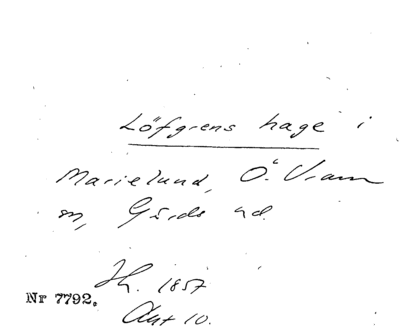 Löfgrens hage i
Marielund, Ö. Vram
sn, Gärds hd.
Lh. 1857
Nr 7792.
Akt 10.